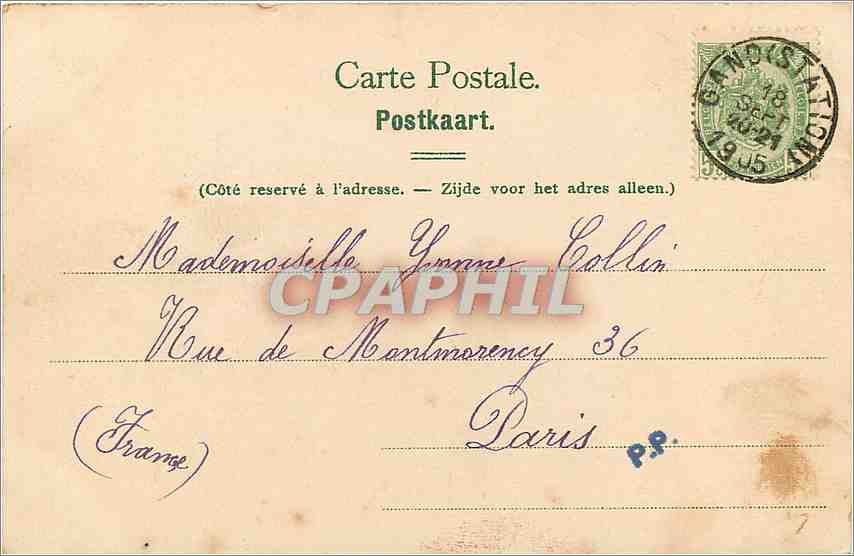 Carte Postale.
Postkaart.
(Côté reservé à l'adresse. — Zijde voor het adres alleen.)
GAND (STATION)
18
SEPT
20-21
1905
Mademoiselle Yvonne Collin
CPAPHIL
Rue de Montmorency 36
Paris
(France)
P.P.